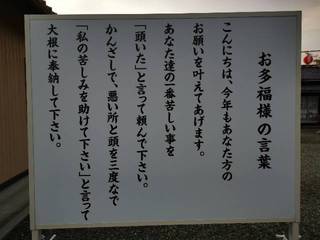 お多福様の言葉
こんにちは、今年もあなた方の
お願いを叶えてあげます。
あなた達の一番苦しい事を
「頭いた」と言って頼んで下さい。
かんざしで、悪い所と頭を三度なで
「私の苦しみを助けて下さい」と言って
大根に奉納して下さい。